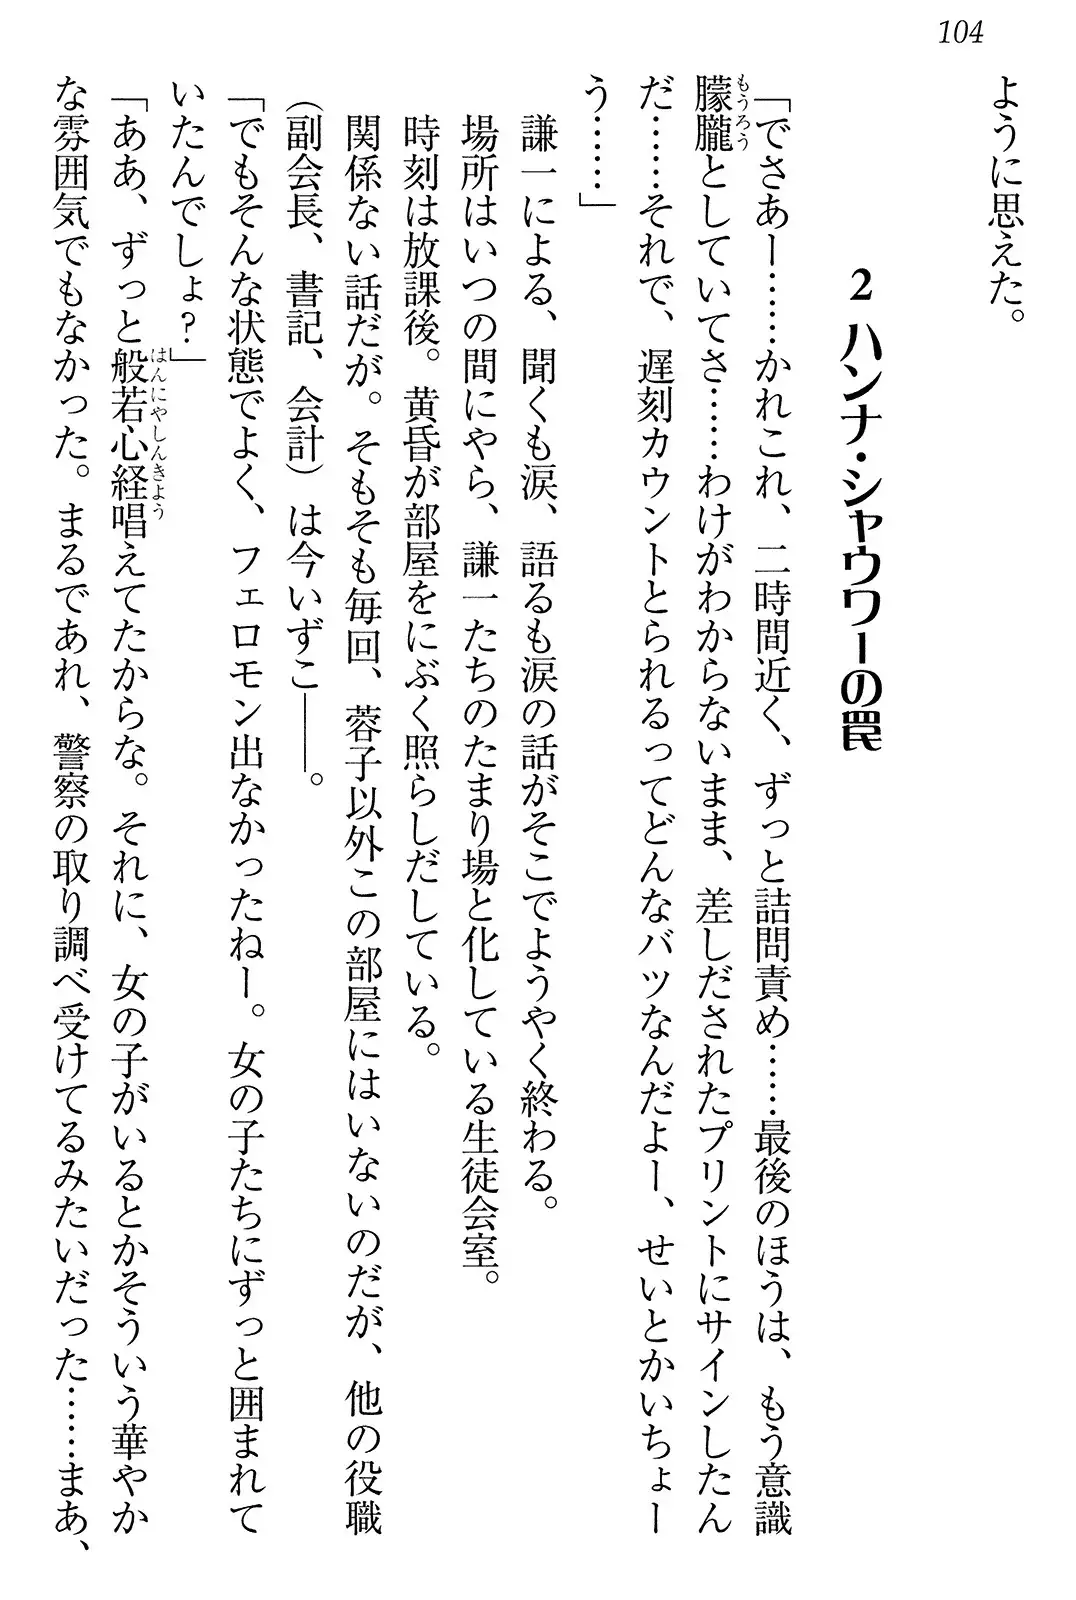 104
ように思えた。
2 ハンナ・シャウワーの罠
「でさあー……かれこれ、二時間近く、ずっと詰問責め……最後のほうは、もう意識
朦朧としていてさ……わけがわからないまま、差しだされたプリントにサインしたん
もうろう
だ……それで、遅刻カウントとられるってどんなバツなんだよー、せいとかいちょー
う……」
謙一による、聞くも涙、語るも涙の話がそこでようやく終わる。
場所はいつの間にやら、謙一たちのたまり場と化している生徒会室。
時刻は放課後。黄昏が部屋をにぶく照らしだしている。
関係ない話だが。そもそも毎回、蓉子以外この部屋にはいないのだが、他の役職
（副会長、書記、会計）は今いずこ――。
「でもそんな状態でよく、フェロモン出なかったねー。女の子たちにずっと囲まれて
いたんでしょ？」
「ああ、ずっと般若心経唱えてたからな。それに、女の子がいるとかそういう華やか
はんにやしんきよう
な雰囲気でもなかった。まるであれ、警察の取り調べ受けてるみたいだった……まあ、